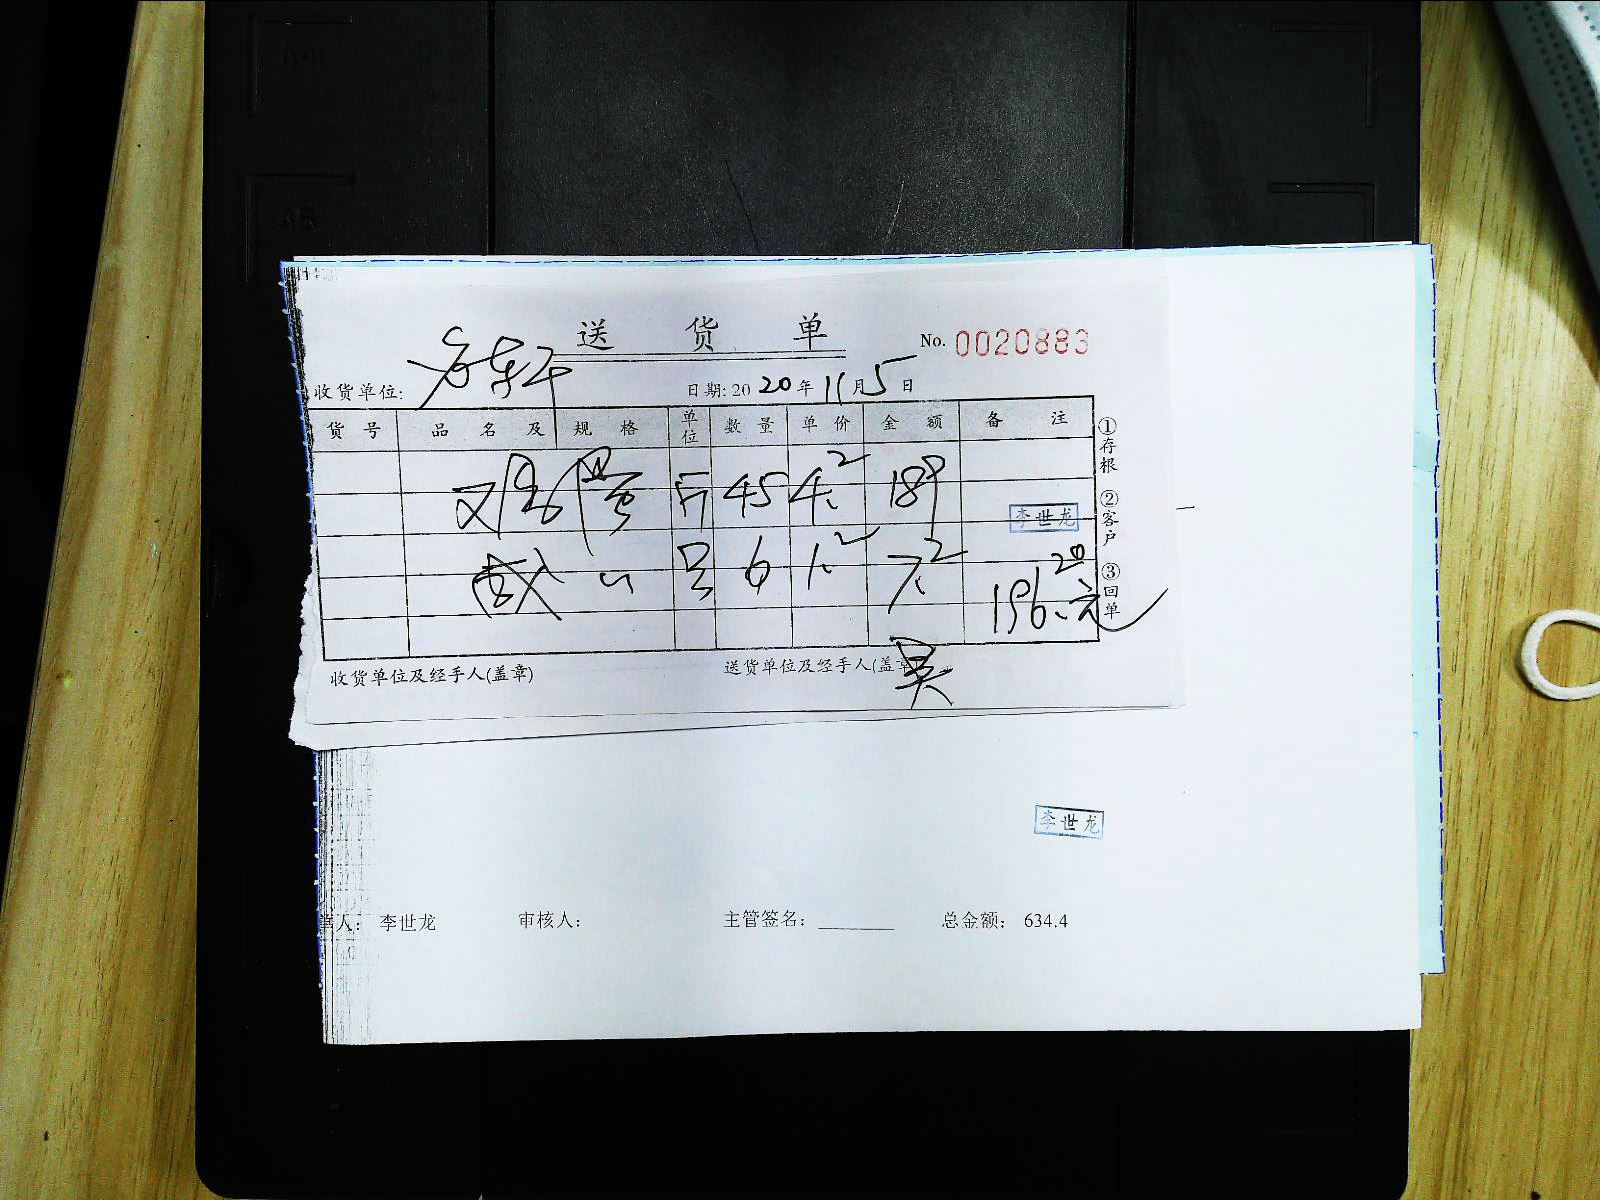 A4
A5
送 货 单
No. 0020883
收货单位:
日期: 20 20 年 11 月 5 日
货 号 品 名 及 规 格 单位 数 量 单 价 金 额 备 注
斤 45 4.2 189
李世龙
6 1.2 7.2
196.20元
①存根 ②客户 ③回单
收货单位及经手人(盖章)
送货单位及经手人(盖章
吴
李世龙
李世龙 审核人: 主管签名: 总金额: 634.4